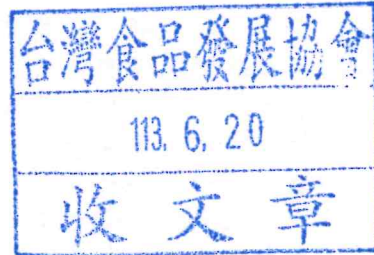 台灣食品發展協會
113. 6. 20
收文章